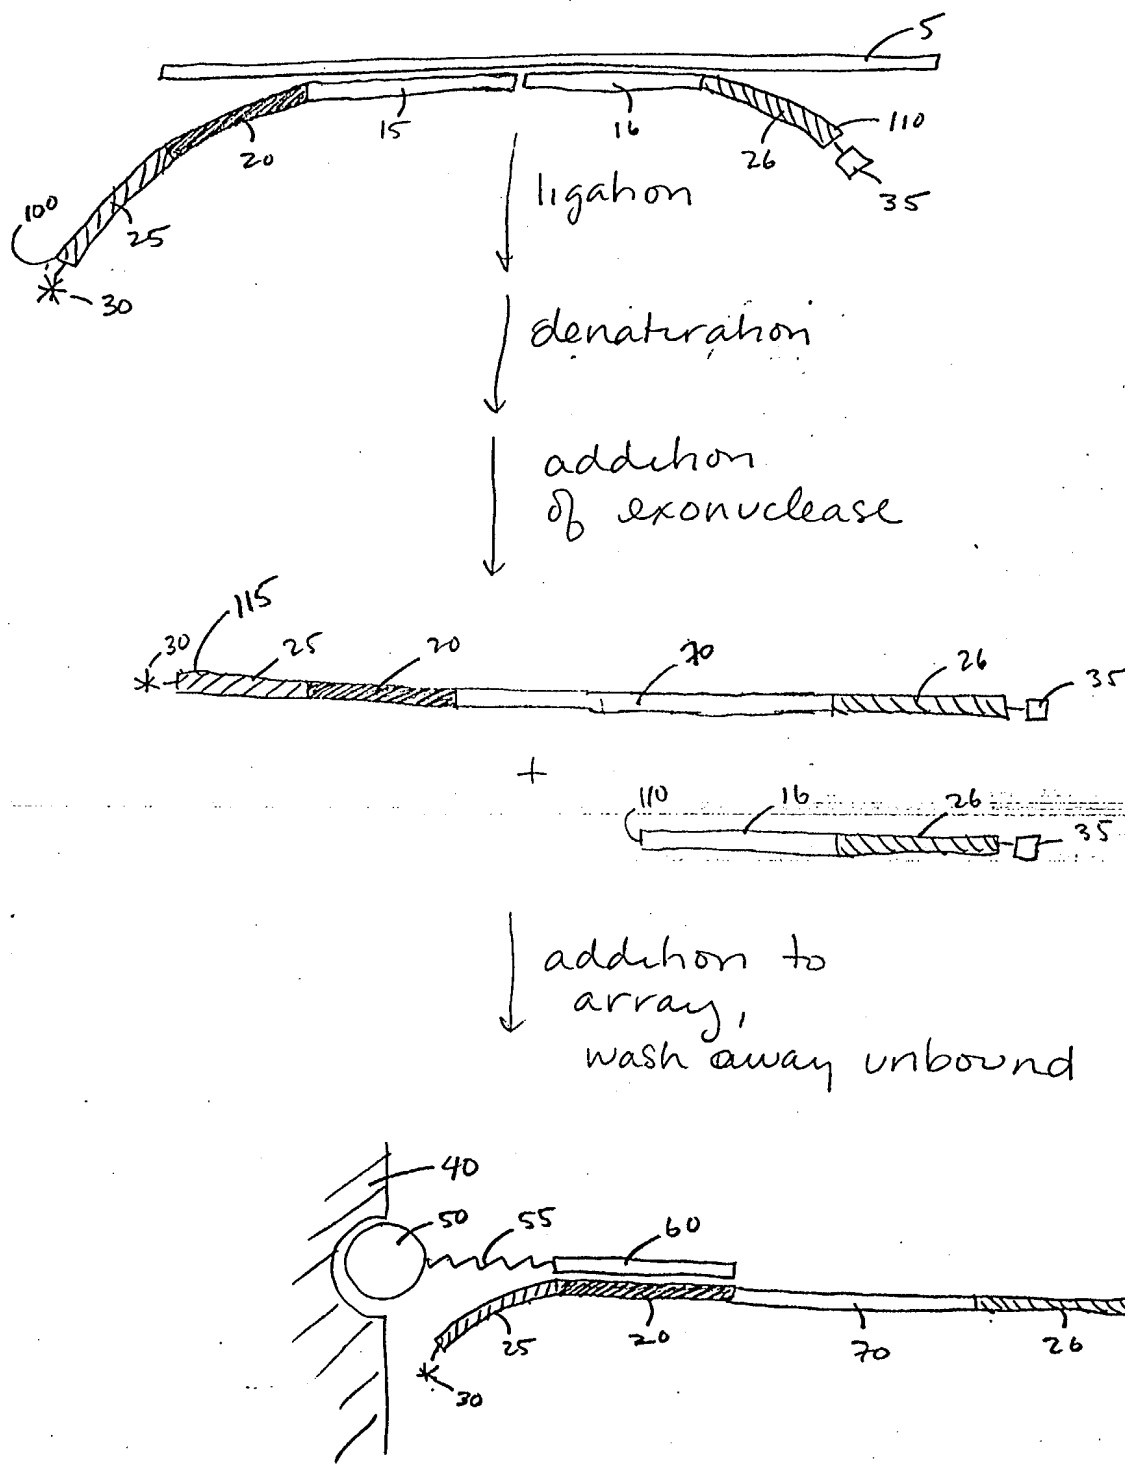 5
15
16
110
20
26
35
ligation
100
25
30
denaturation
addition
of exonuclease
115
30
25
20
70
26
35
+
110
16
26
35
addition to
array,
wash away unbound
40
50
55
60
25
20
70
26
30